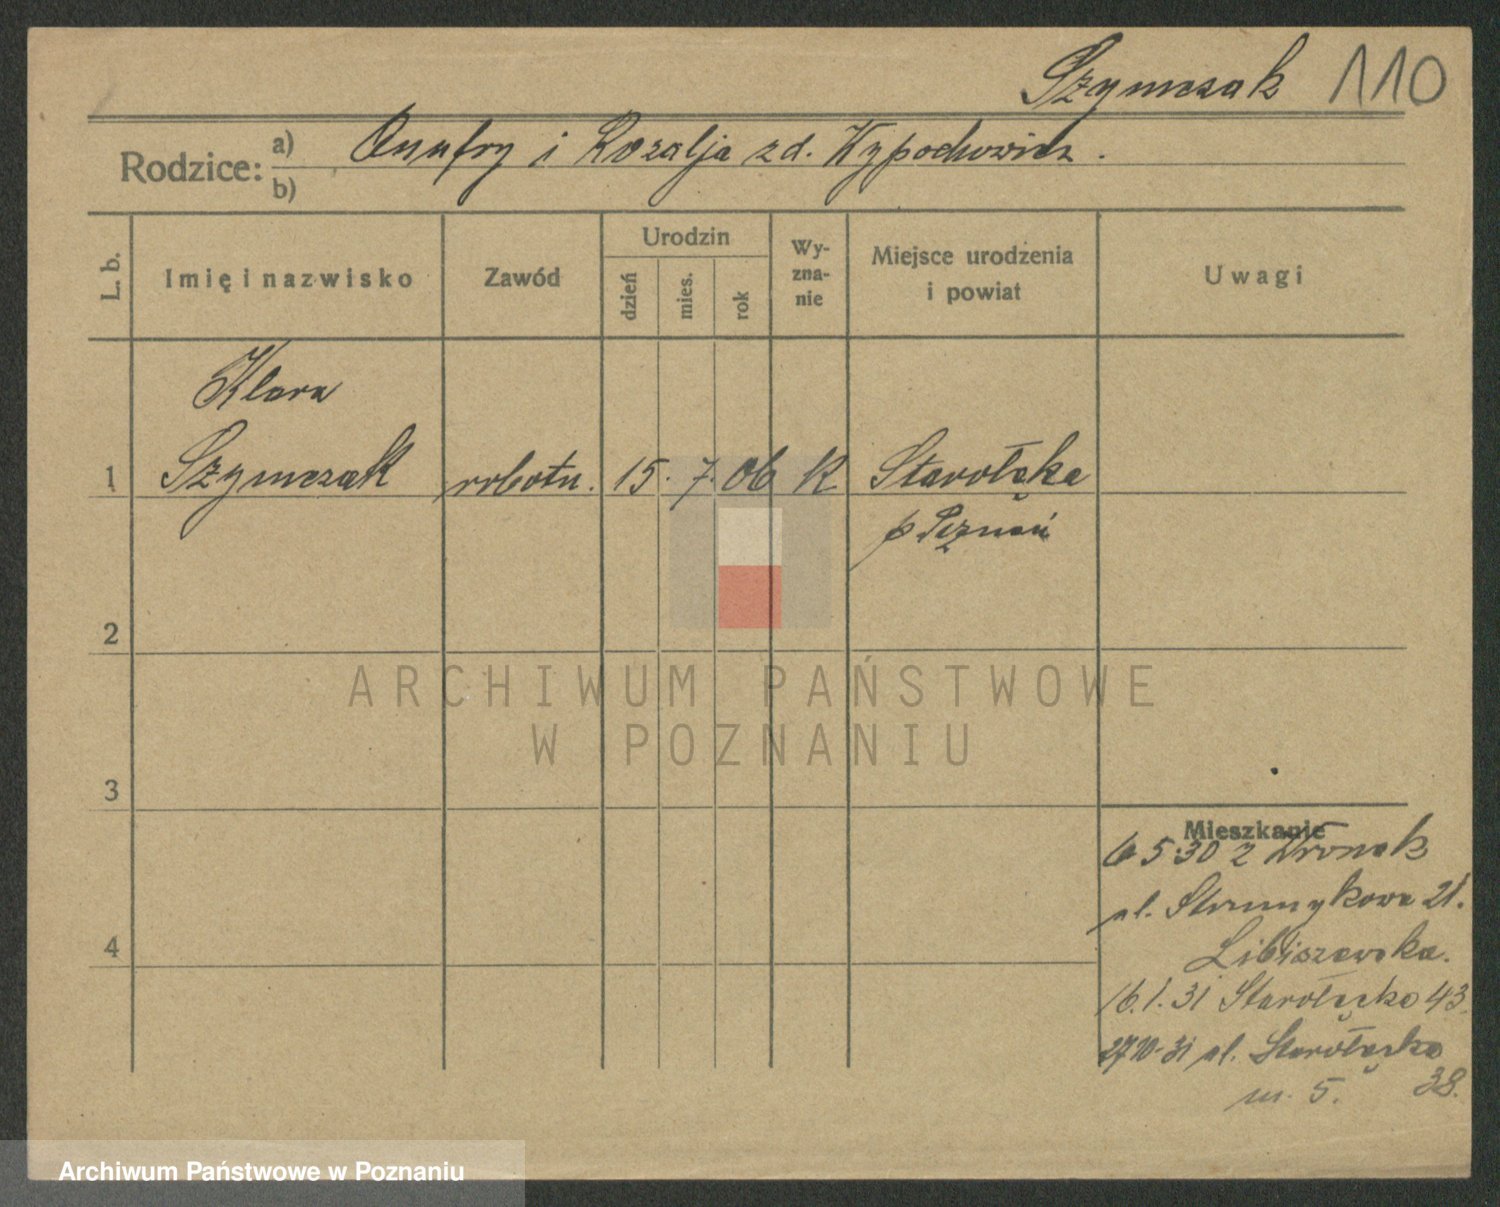 Szymczak 110
Rodzice: a) Onufry i Rozalja zd. Wypochowicz.
b)
L. b.
Imię i nazwisko
Zawód
Urodzin
dzień
mies.
rok
Wy-
zna-
nie
Miejsce urodzenia
i powiat
Uwagi
Klara
1 Szymczak robotn. 15. 7. 06 K Starołęka
p Poznań
2
ARCHIWUM PAŃSTWOWE
W POZNANIU
3
Mieszkanie
6 5.30 z Wronek
ul. Strumykowa 21.
Libiszewska.
4
16.1.31 Starołęcka 43.
27 10-31 ul. Starołęcka
38.
m. 5.
Archiwum Państwowe w Poznaniu